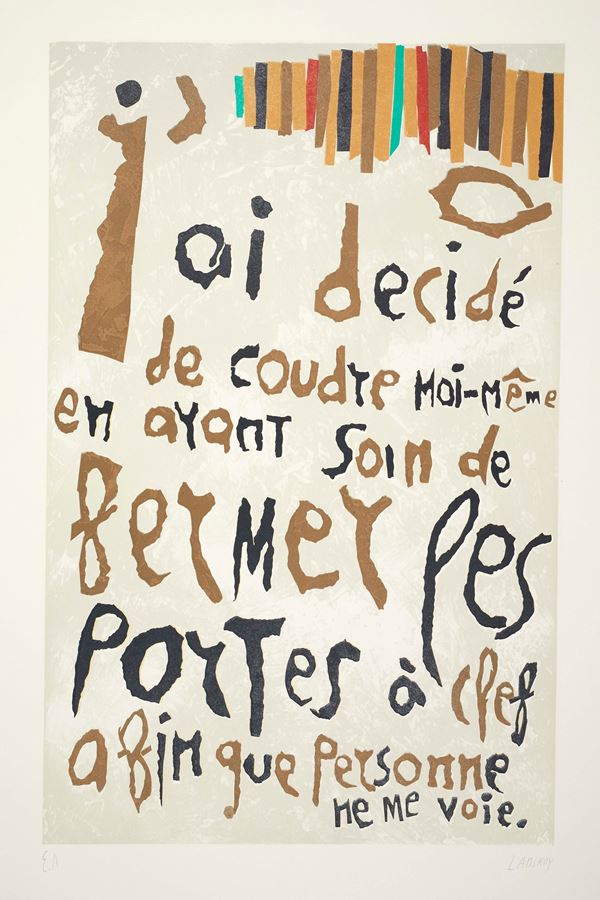 j'ai decidé
de coudre moi-même
en ayant soin de
fermer les
portes à clef
afin que personne
ne me voie.
E.A LANSKOY